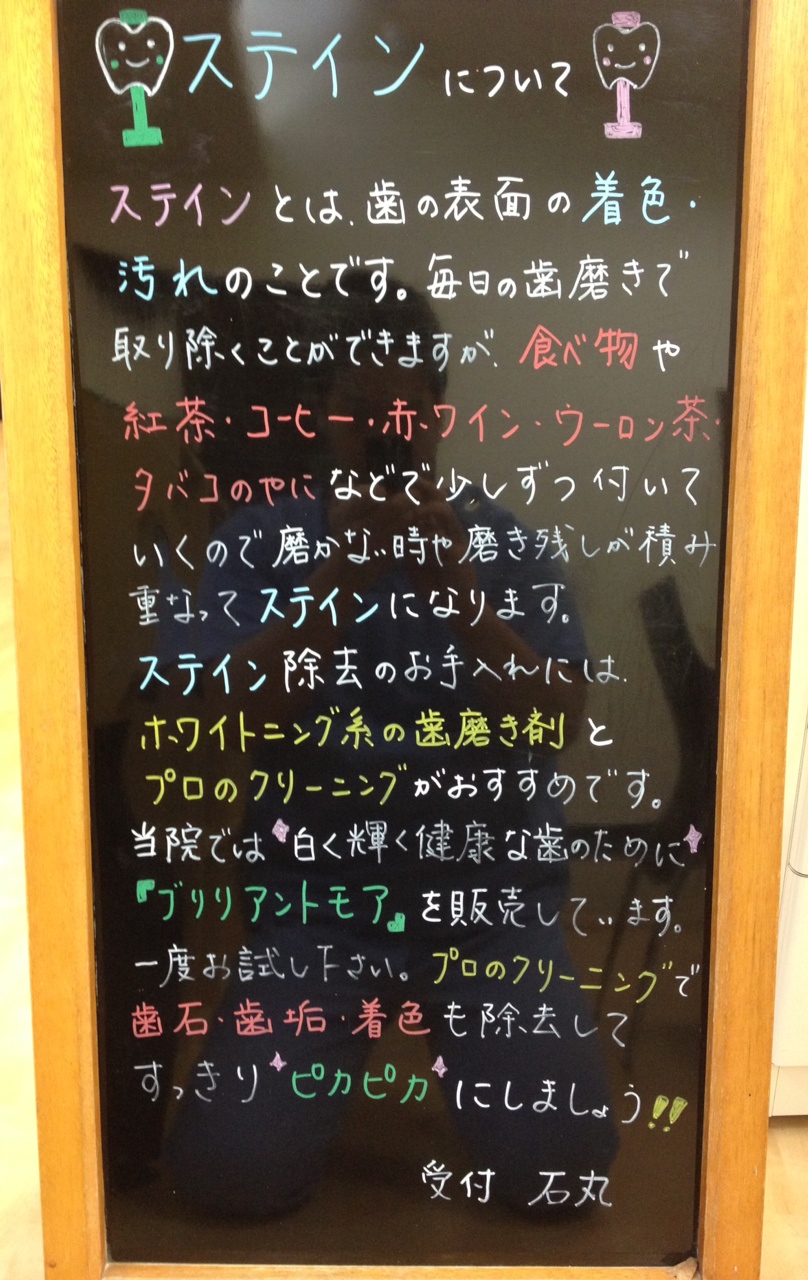 ステインについて
ステインとは、歯の表面の着色・
汚れのことです。毎日の歯磨きで
取り除くことができますが、食べ物や
紅茶・コーヒー・赤ワイン・ウーロン茶・
タバコのやになどで少しずつ付いて
いくので磨かない時や磨き残しが積み
重なってステインになります。
ステイン除去のお手入れには、
ホワイトニング系の歯磨き剤と
プロのクリーニングがおすすめです。
当院では白く輝く健康な歯のために
『ブリリアントモア』を販売しています。
一度お試し下さい。プロのクリーニングで
歯石・歯垢・着色も除去して
すっきりピカピカにしましょう!!
受付 石丸